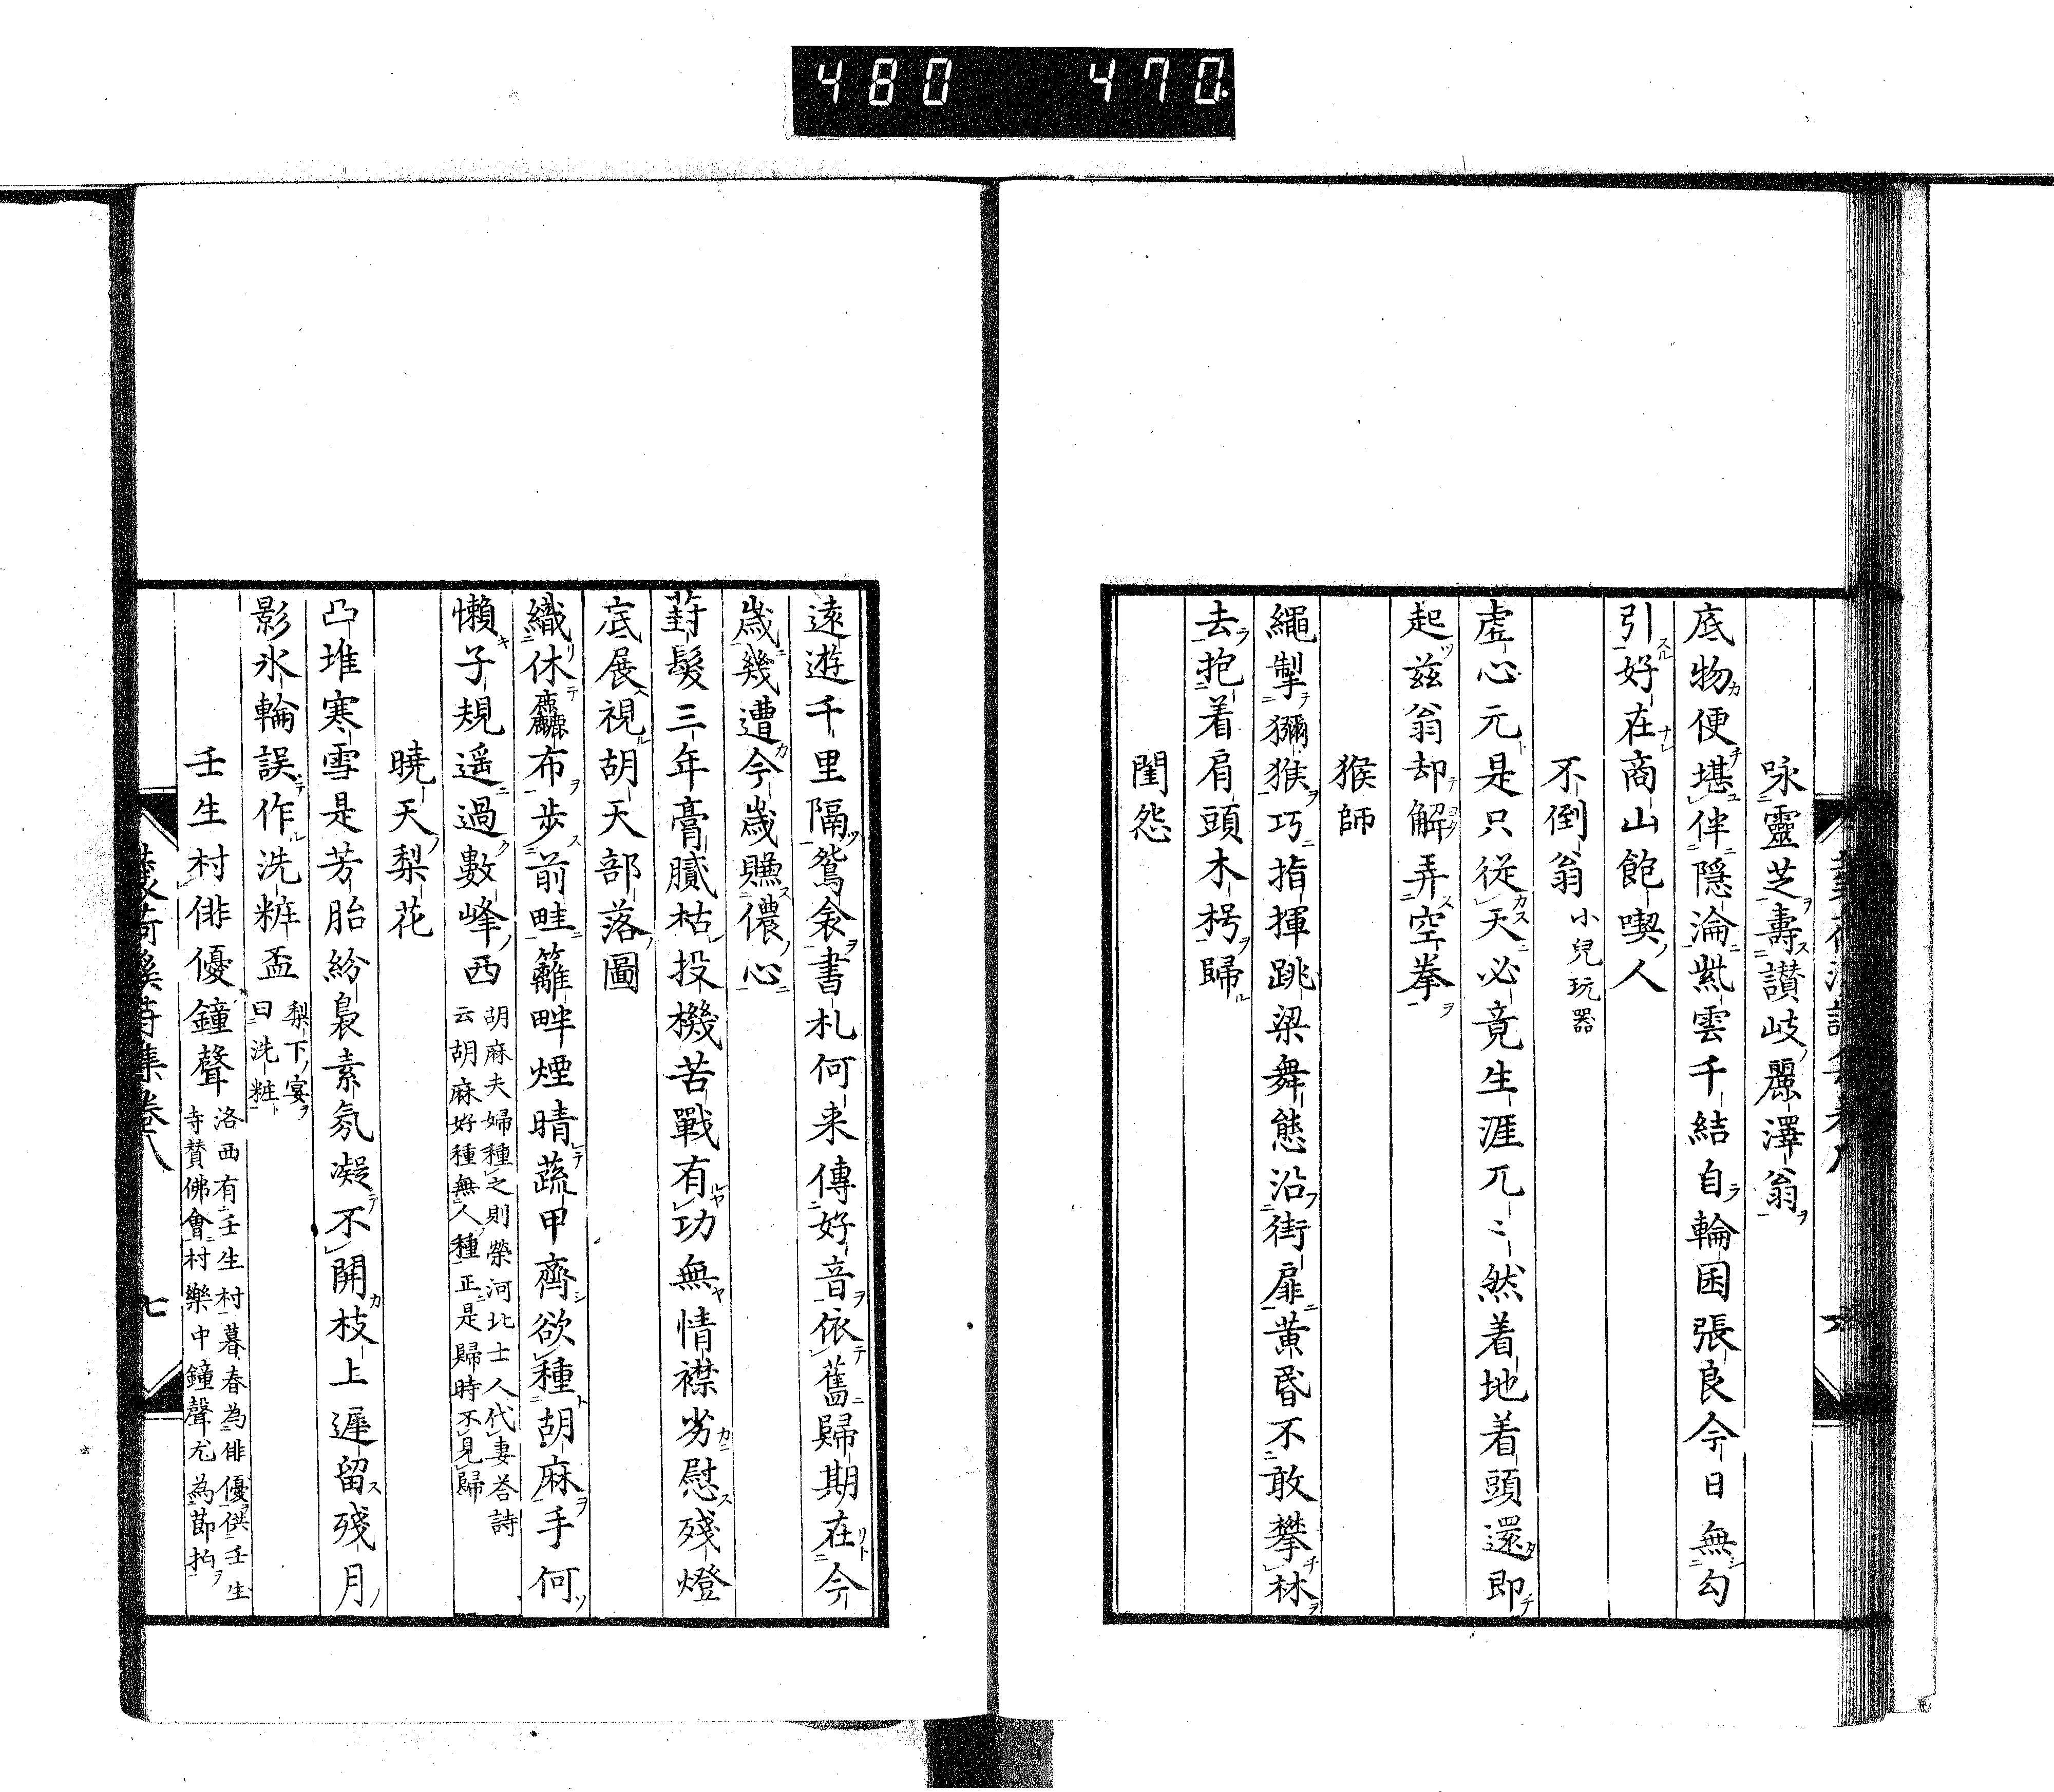 480 470
咏靈芝壽讃岐麗澤翁
底物便堪伴隱淪紫雲千結自輪囷張良今日無勾
引好在商山飽喫人
不倒翁 小兒玩器
虛心元是只從天必竟生涯兀〻然着地着頭還即
起茲翁却解弄空拳
猴師
繩掣獼猴巧指揮跳梁舞態沿街扉黄昏不敢攀林
去抱着肩頭木枴歸
閨怨
遠遊千里隔鴛衾書札何来傳好音依舊歸期在今
歳幾遭今歳賺儂心
葑髮三年膏膩枯投機苦戰有功無情襟劣慰殘燈
底展視胡天部落圖
織休麤布歩前畦籬畔煙晴蔬甲齊欲種胡麻手何
懶子規遥過數峰西 胡麻夫婦種之則榮河北士人代妻荅詩
云胡麻好種無人種正是歸時不見歸
曉天梨花
凸堆寒雪是芳胎紛裊素氛凝不開枝上遲留殘月
影氷輪誤作洗粧盃 梨下宴
曰洗粧
壬生村俳優鐘聲 洛西有壬生村暮春為俳優供壬生
寺賛佛會村樂中鐘聲尤為節拍
集巻八
七